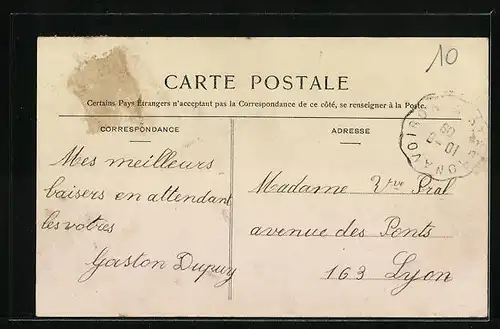 10
CARTE POSTALE
Certains Pays Étrangers n'acceptant pas la Correspondance de ce côté, se renseigner à la Poste.
CORRESPONDANCE
Mes meilleurs
baisers en attendant
les votres
Gaston Dupuy
ADRESSE
Madame Vve Pral
avenue des Ponts
163 Lyon